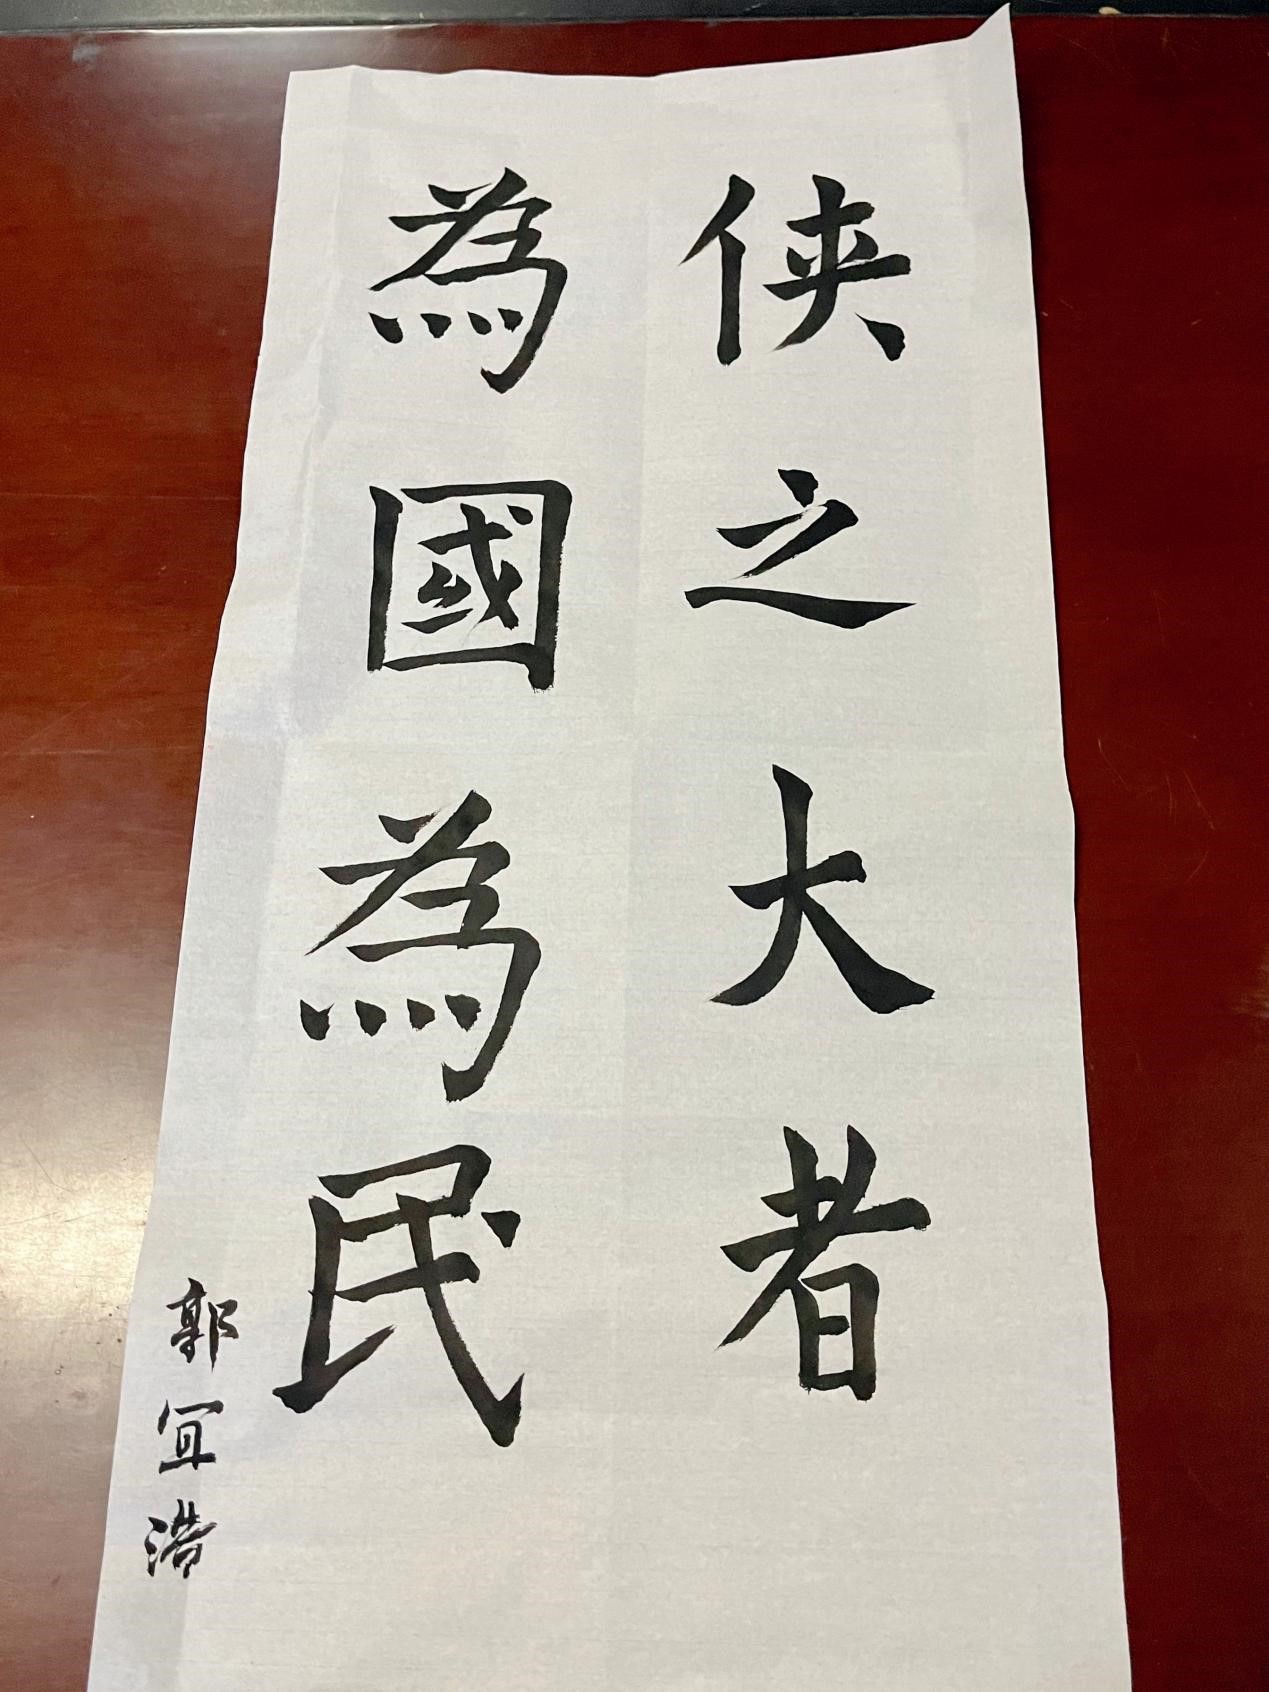 侠之大者
為國為民
郭宜浩